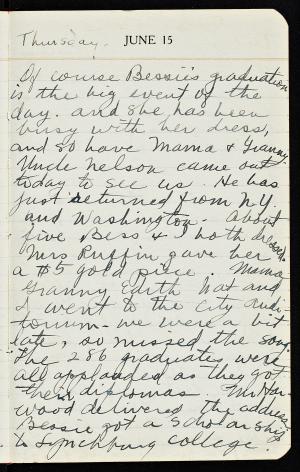 Thursday. JUNE 15
Of course Bessie's graduation
is the big event of the
day. and she has been
busy with her dress,
and so have Mama & Granny.
Uncle Nelson came out
today to see us. He has
just returned from N.Y.
and Washington. About
five Bess & I both dressed.
Mrs Ruffin gave her
a $5 gold piece. Mama
Granny Edith Nat and
I went to the City Audi-
torium - we were a bit
late, so missed the song.
The 286 graduates were
all applauded as they got
their diplomas. Mr Har-
wood delivered the address.
Bessie got a Scholarship
to Lynchburg College.